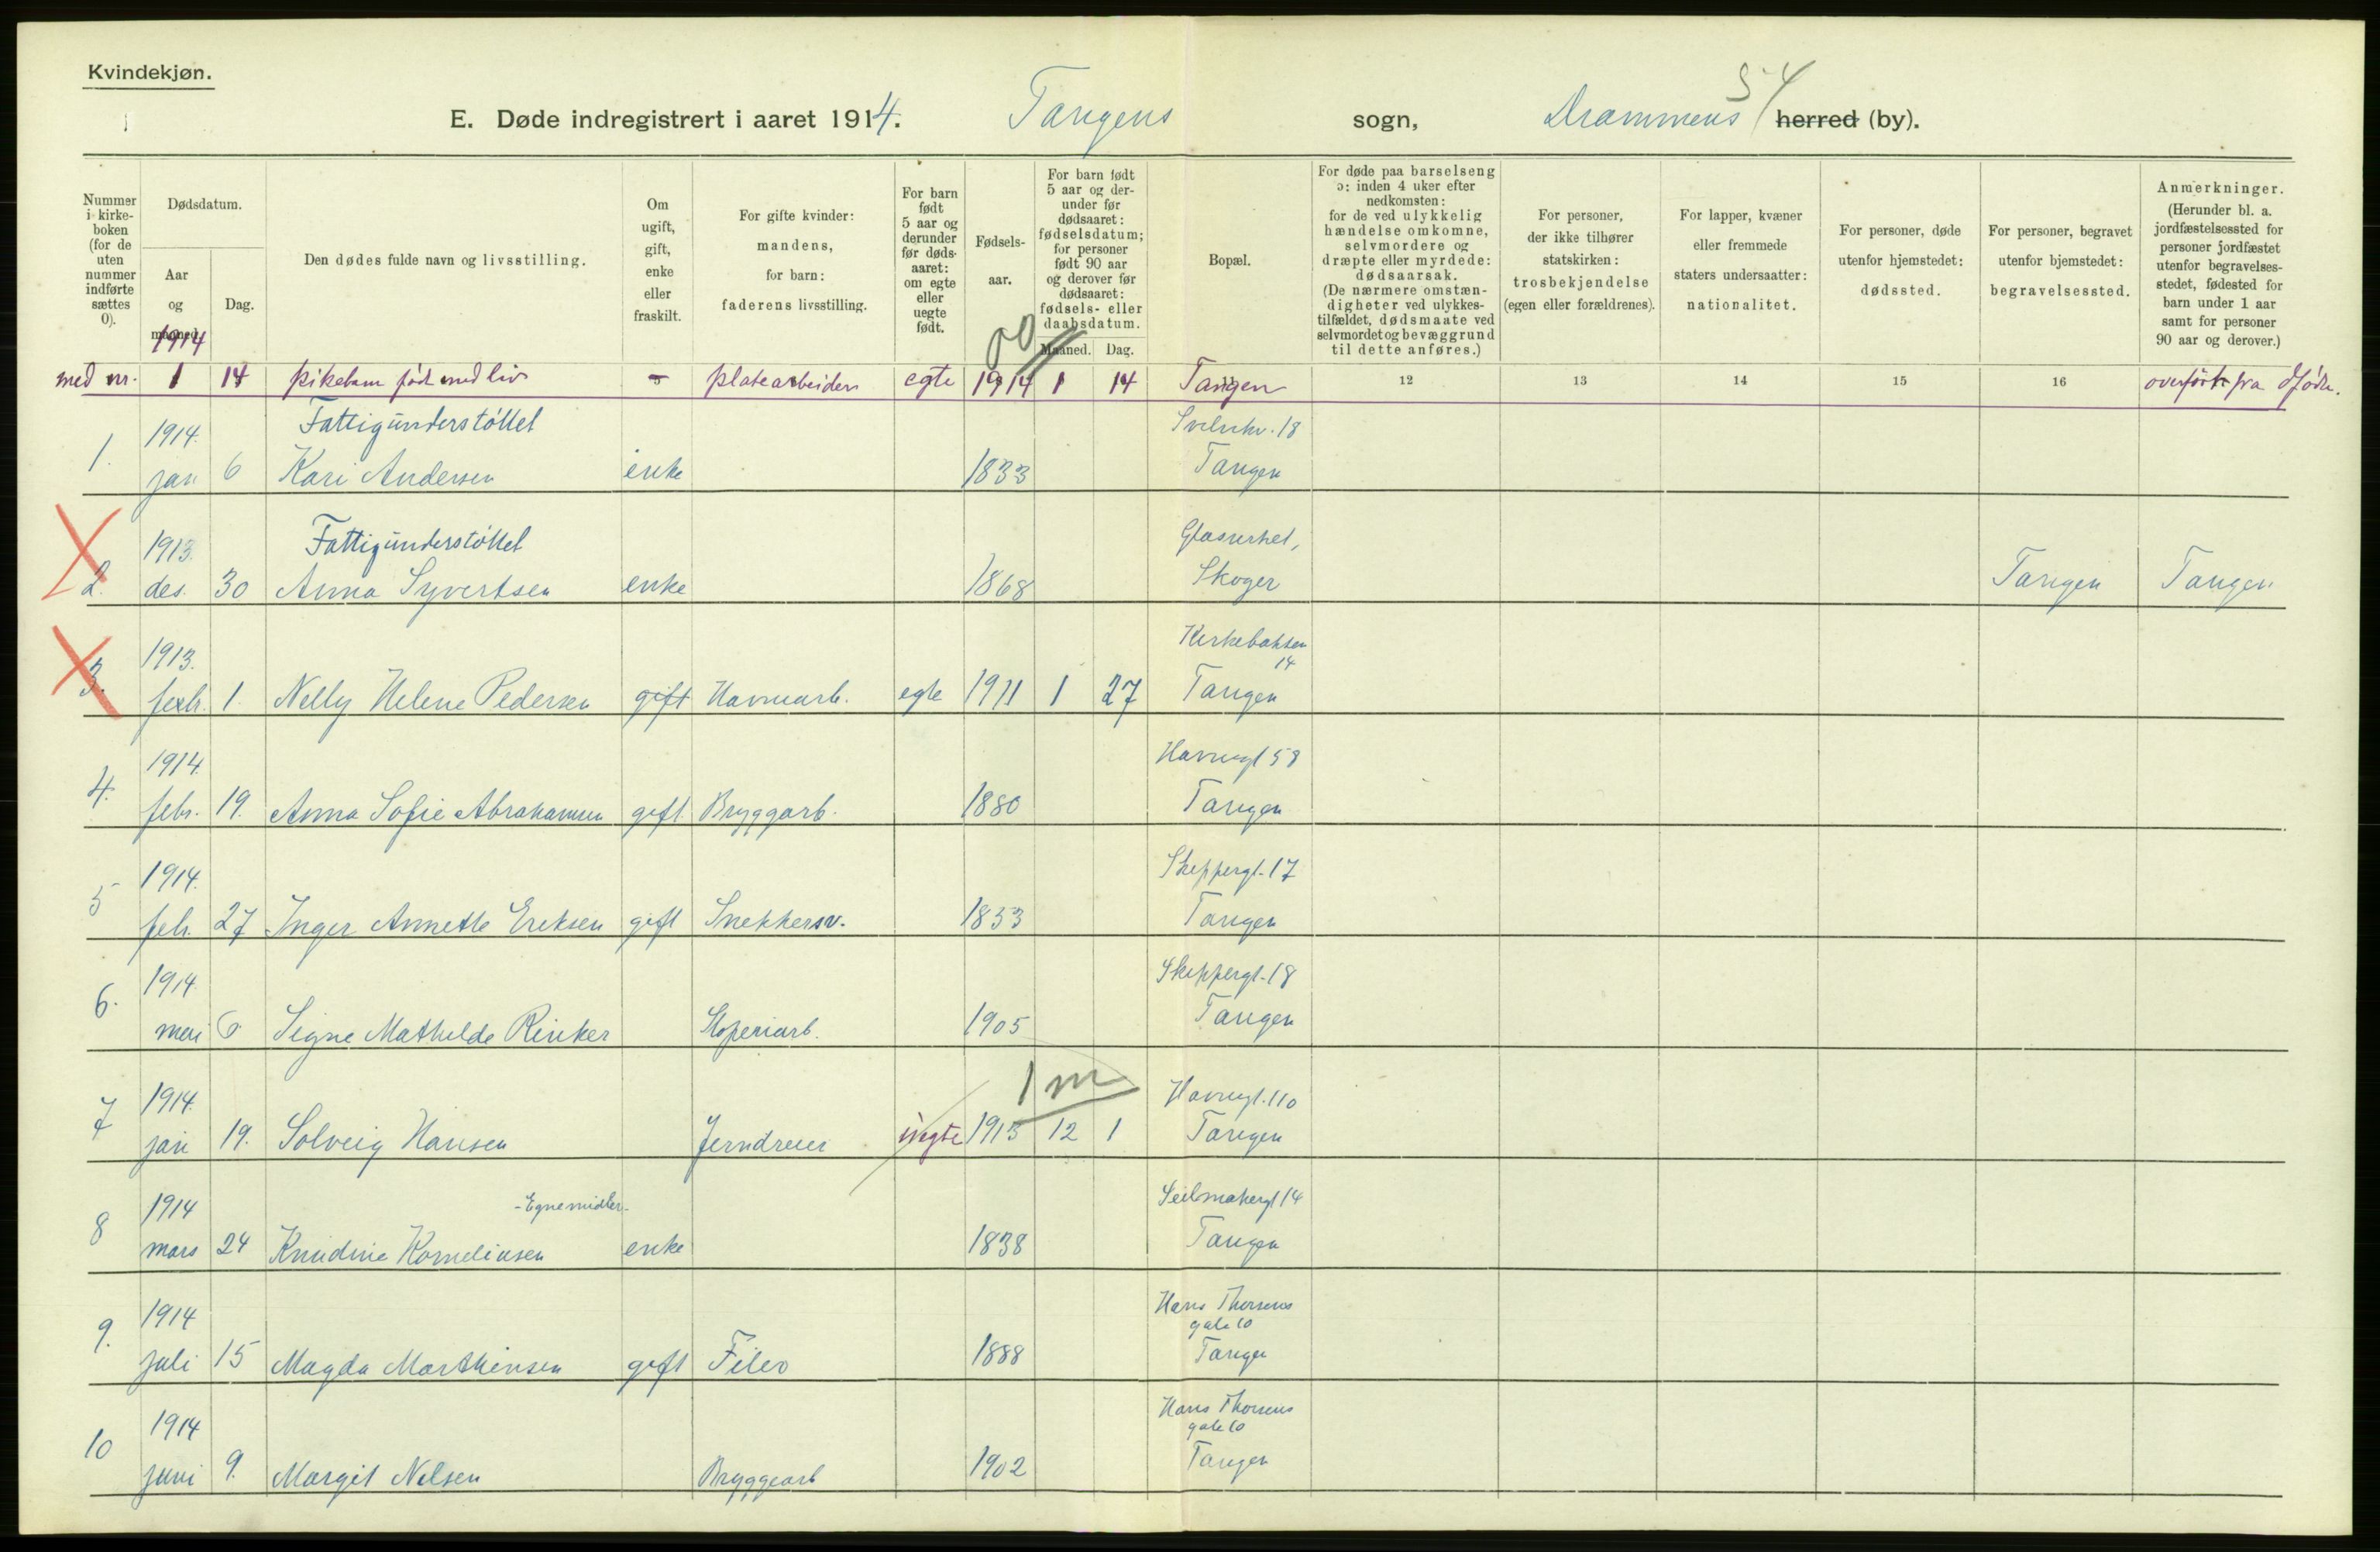 Kvindekjøn.
54
E. Døde indregistrert i aaret 1914. Tangens sogn, Drammens herred (by).
Nummer i kirke- boken (for de uten nummer indførte sættes 0).
Dødsdatum.
Aar og maaned.
1914
Dag.
Den dødes fulde navn og livsstilling.
Om ugift, gift, enke eller fraskilt.
For gifte kvinder: mandens, for barn: faderens livsstilling.
For barn født 5 aar og derunder før døds- aaret: om egte eller uegte født.
Fødsels- aar.
For barn født 5 aar og der- under før dødsaaret: fødselsdatum; for personer født 90 aar og derover før dødsaaret: fødsels- eller daabsdatum.
Maaned. Dag.
00
Bopæl.
For døde paa barselseng ɔ: inden 4 uker efter nedkomsten: for de ved ulykkelig hændelse omkomne, selvmordere og dræpte eller myrdede: dødsaarsak. (De nærmere omstæn- digheter ved ulykkes- tilfældet, dødsmaate ved selvmord et og bevæggrund til dette anføres.)
For personer, der ikke tilhører statskirken: trosbekjendelse (egen eller forældrenes).
For lapper, kvæner eller fremmede staters undersaatter: nationalitet.
For personer, døde utenfor hjemstedet: dødssted.
For personer, begravet utenfor bjemstedet: begravelsessted.
Anmerkninger. (Herunder bl. a. jordfæstelsessted for personer jordfæstet utenfor begravelses- stedet, fødested for barn under 1 aar samt for personer 90 aar og derover.)
med nr. 1 14 pikebarn født med liv - platearbeider egte 1914 1 14 Tangen 12 13 14 15 16 overført fra dfødte.
1914. Fattigunderstöttet Svelvikv. 18
1. jan 6 Kari Andersen enke 1833 Tangen
1913. Fattigunderstöttet Glasverket,
2. des. 30 Anna Syvertsen enke 1868 Skoger Tangen Tangen
1913. Kirkebakken 14
3. febr. 1. Nelly Helene Pedersen gift Havnearb. egte 1911 1 27 Tangen
1914. Havnegt 58
4. febr. 19. Anna Sofie Abrahamsen gift Bryggarb. 1880 Tangen
1914. Skeppergt. 17
5 febr. 27 Inger Annette Ereksen gift Snekkersv. 1853 Tangen
1914 Skeppergt. 18
6. mai 6 Signe Mathilde Rinker Støperiarb. 1905 Tangen
1 m
1914. Havnegt. 110
7 jan 19. Solveig Hansen Jerndreier uegte 1913 12 1 Tangen
1914 - Egne midler - Seilmakergt 14
8 mars 24 Knudine Korneliusen enke 1838 Tangen
1914 Hans Thorsens gate 10
9. juli 15 Magda Marthinsen gift Filer 1888 Tangen
1914 Hans Thorsens gate 10
10 juni 9. Margit Nilsen Bryggearb 1902 Tangen